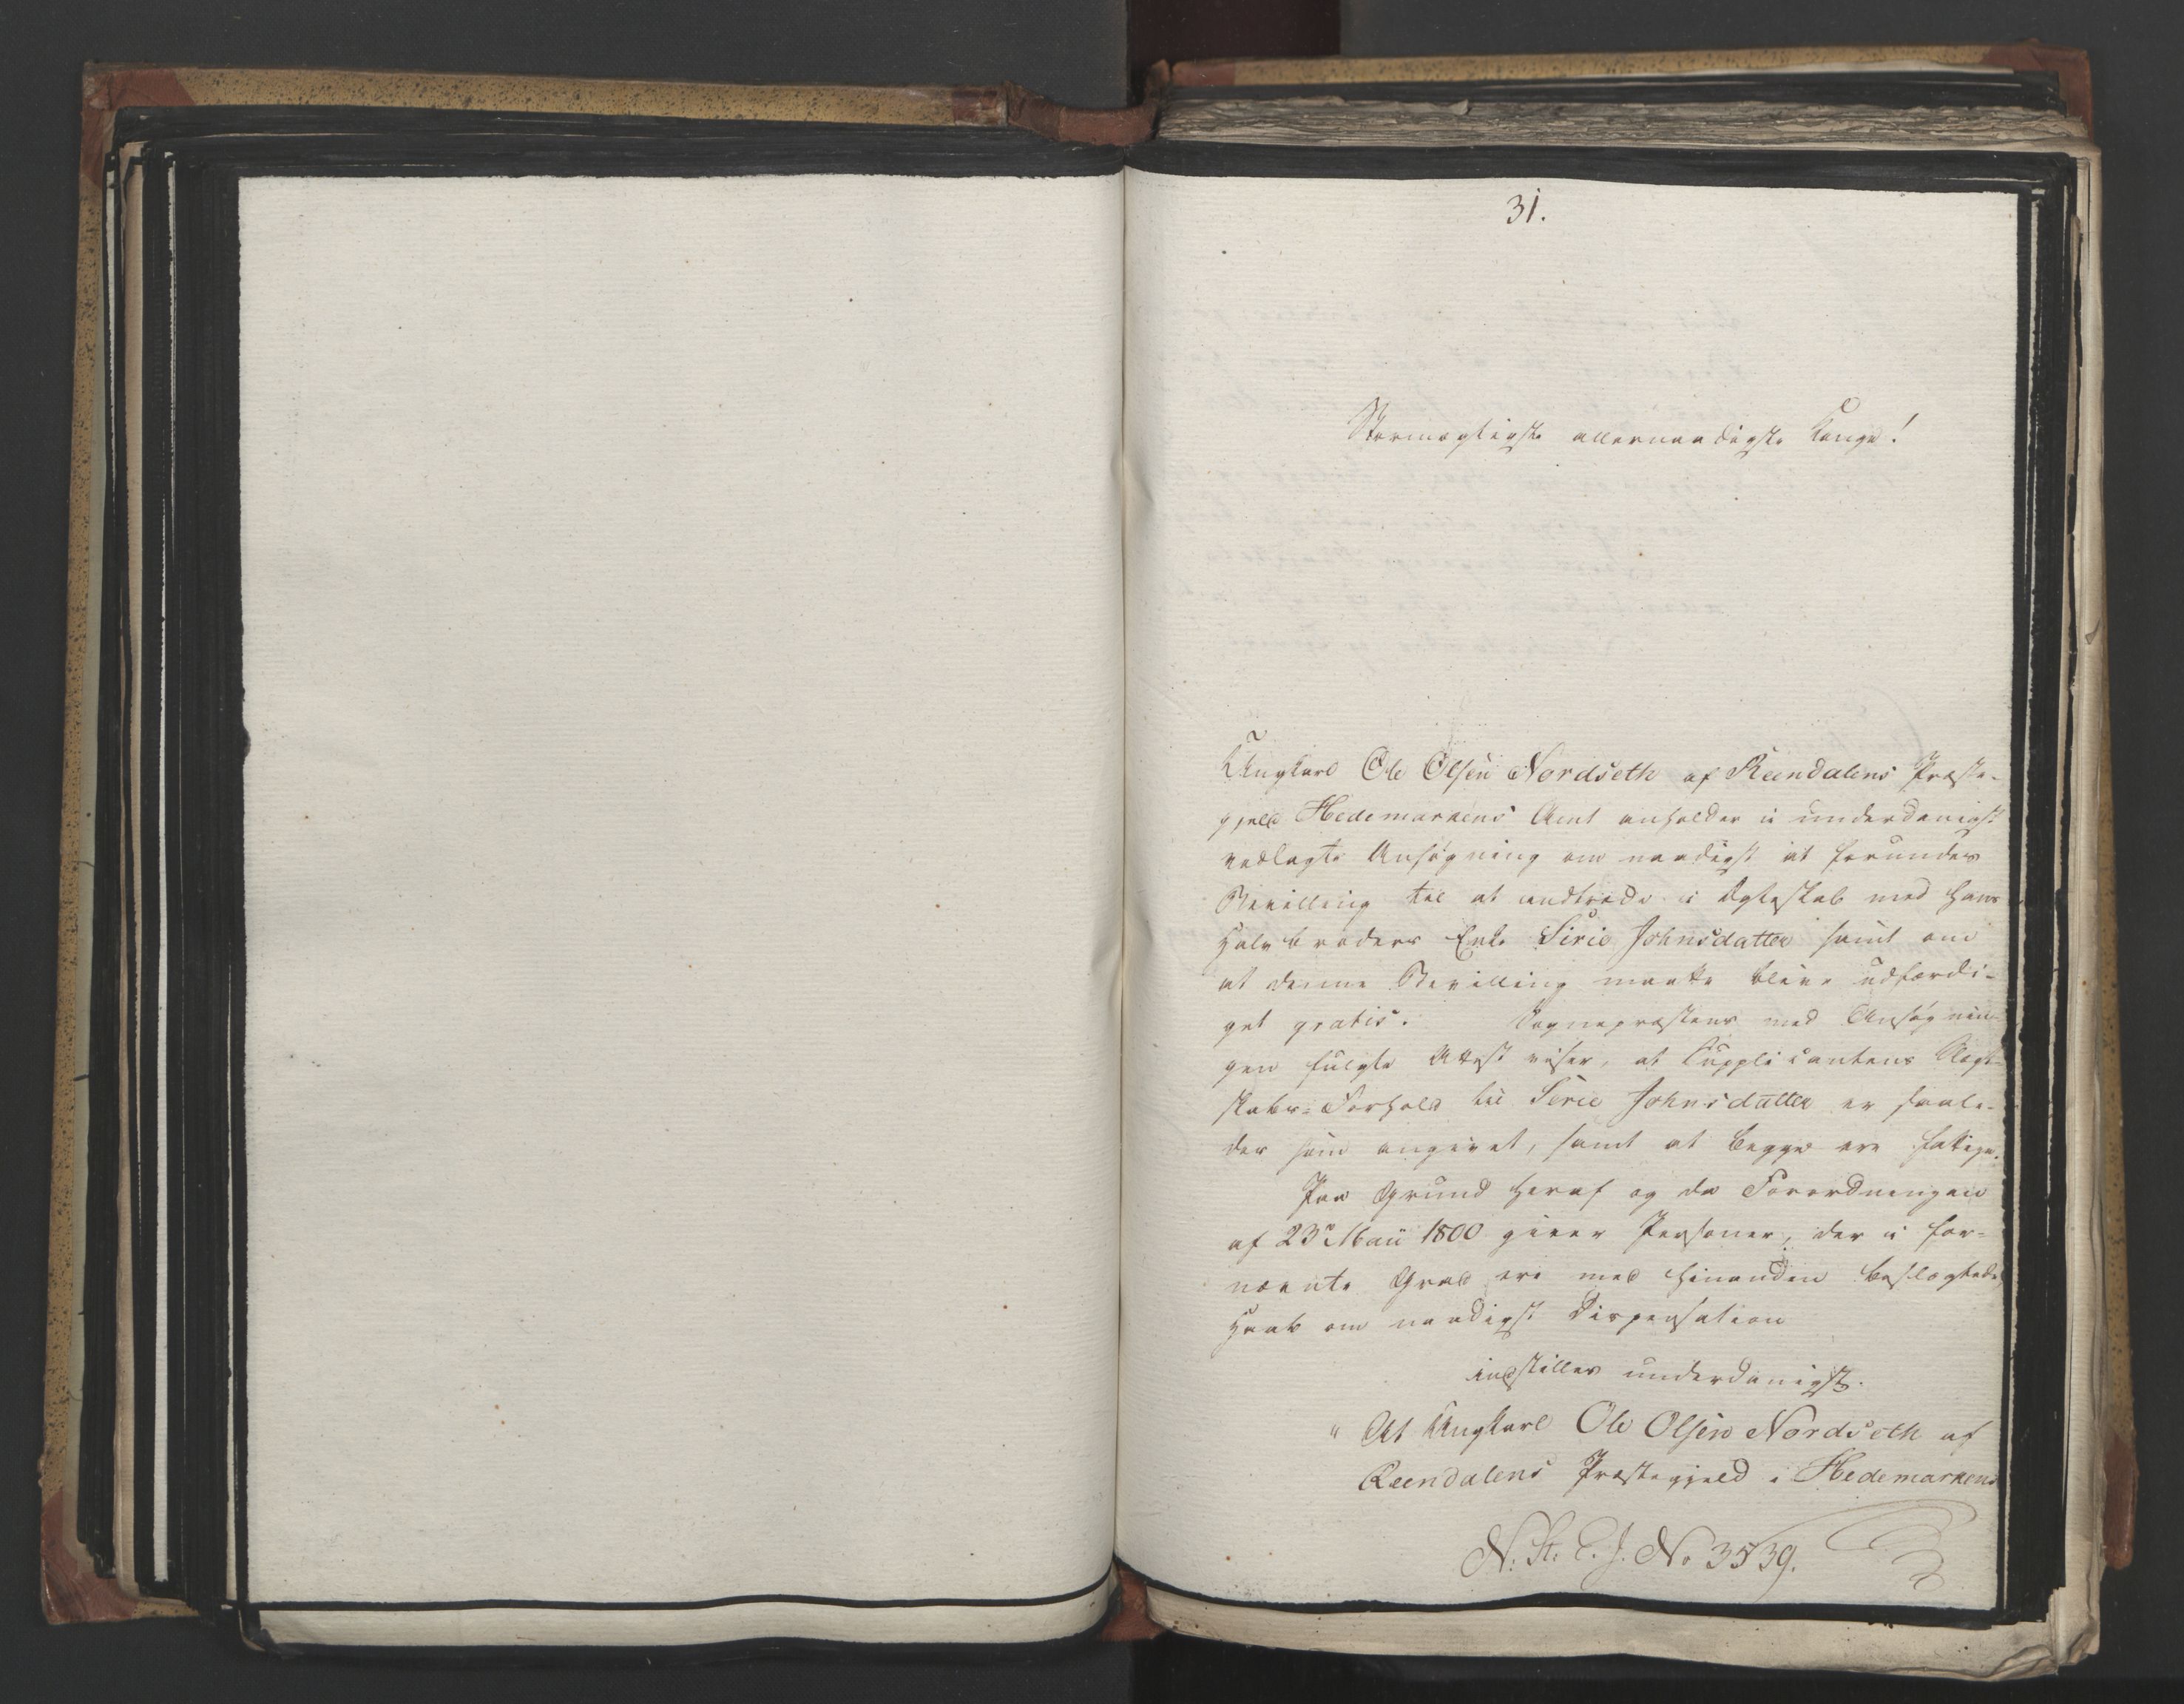 31.
Stormægtigste allernaadigste Konge!
Ungkarl Ole Olsen Nordseth af Reendalens Præste-
gjeld Hedemarkens Amt anholder i underdanigst
vedlagte Ansøgning om naadigst at forundes
Bevilling til at indtræde i Ægteskab med hans
Halvbroders Enke Sirie Johnsdatter samt om
at denne Bevilling maatte blive udfærdi-
get gratis. Sognepræstens med Ansøgnin-
gen fulgte Attest viser, at Supplicantens Slægt-
skabs-Forhold til Sirie Johnsdatter er saale-
des som angivet, samt at begge ere fattige.
Paa Grund heraf og da Forordningen
af 23de Maii 1800 giver Personer, der i for-
nævnte Grad ere med hinanden beslægtede,
Haab om naadigst Dispensation
indstilles underdanigst.
" At Ungkarl Ole Olsen Nordseth af
Reendalens Præstegjeld i Hedemarkens
N. St. E. J. No 3539.